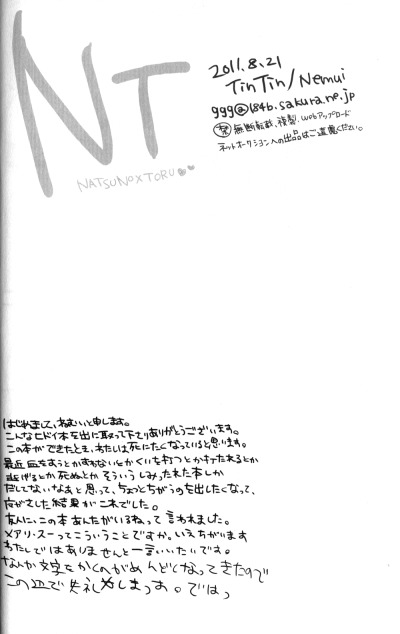 NT
NATSUNO×TORU
2011.8.21
TinTin/Nemui
ggg@184b.sakura.ne.jp
禁 無断転載、複製、webアップロード
ネットオークションへの出品はご遠慮ください。
はじめまして、ねむいと申します。
こんなヒドイ本を手に取って下さりありがとうございます。
この本ができたとき、わたしは死にたくなっていると思います。
最近 血をすうとかすわないとかくいを打つとか打たれるとか
逃げるとか死ぬとか そういうしみったれた本しか
だしてないなあと思って、ちょっとちがうのを出したくなって、
魔がさした結果がこれでした。
友人に、この本あんたがいるねって言われました。
メアリ・スーってこういうことですか。いえちがいます
わたしではありませんと一言いいたいです。
なんか文字をかくのがめんどくなってきたので
この辺で失礼しまっす。ではっ